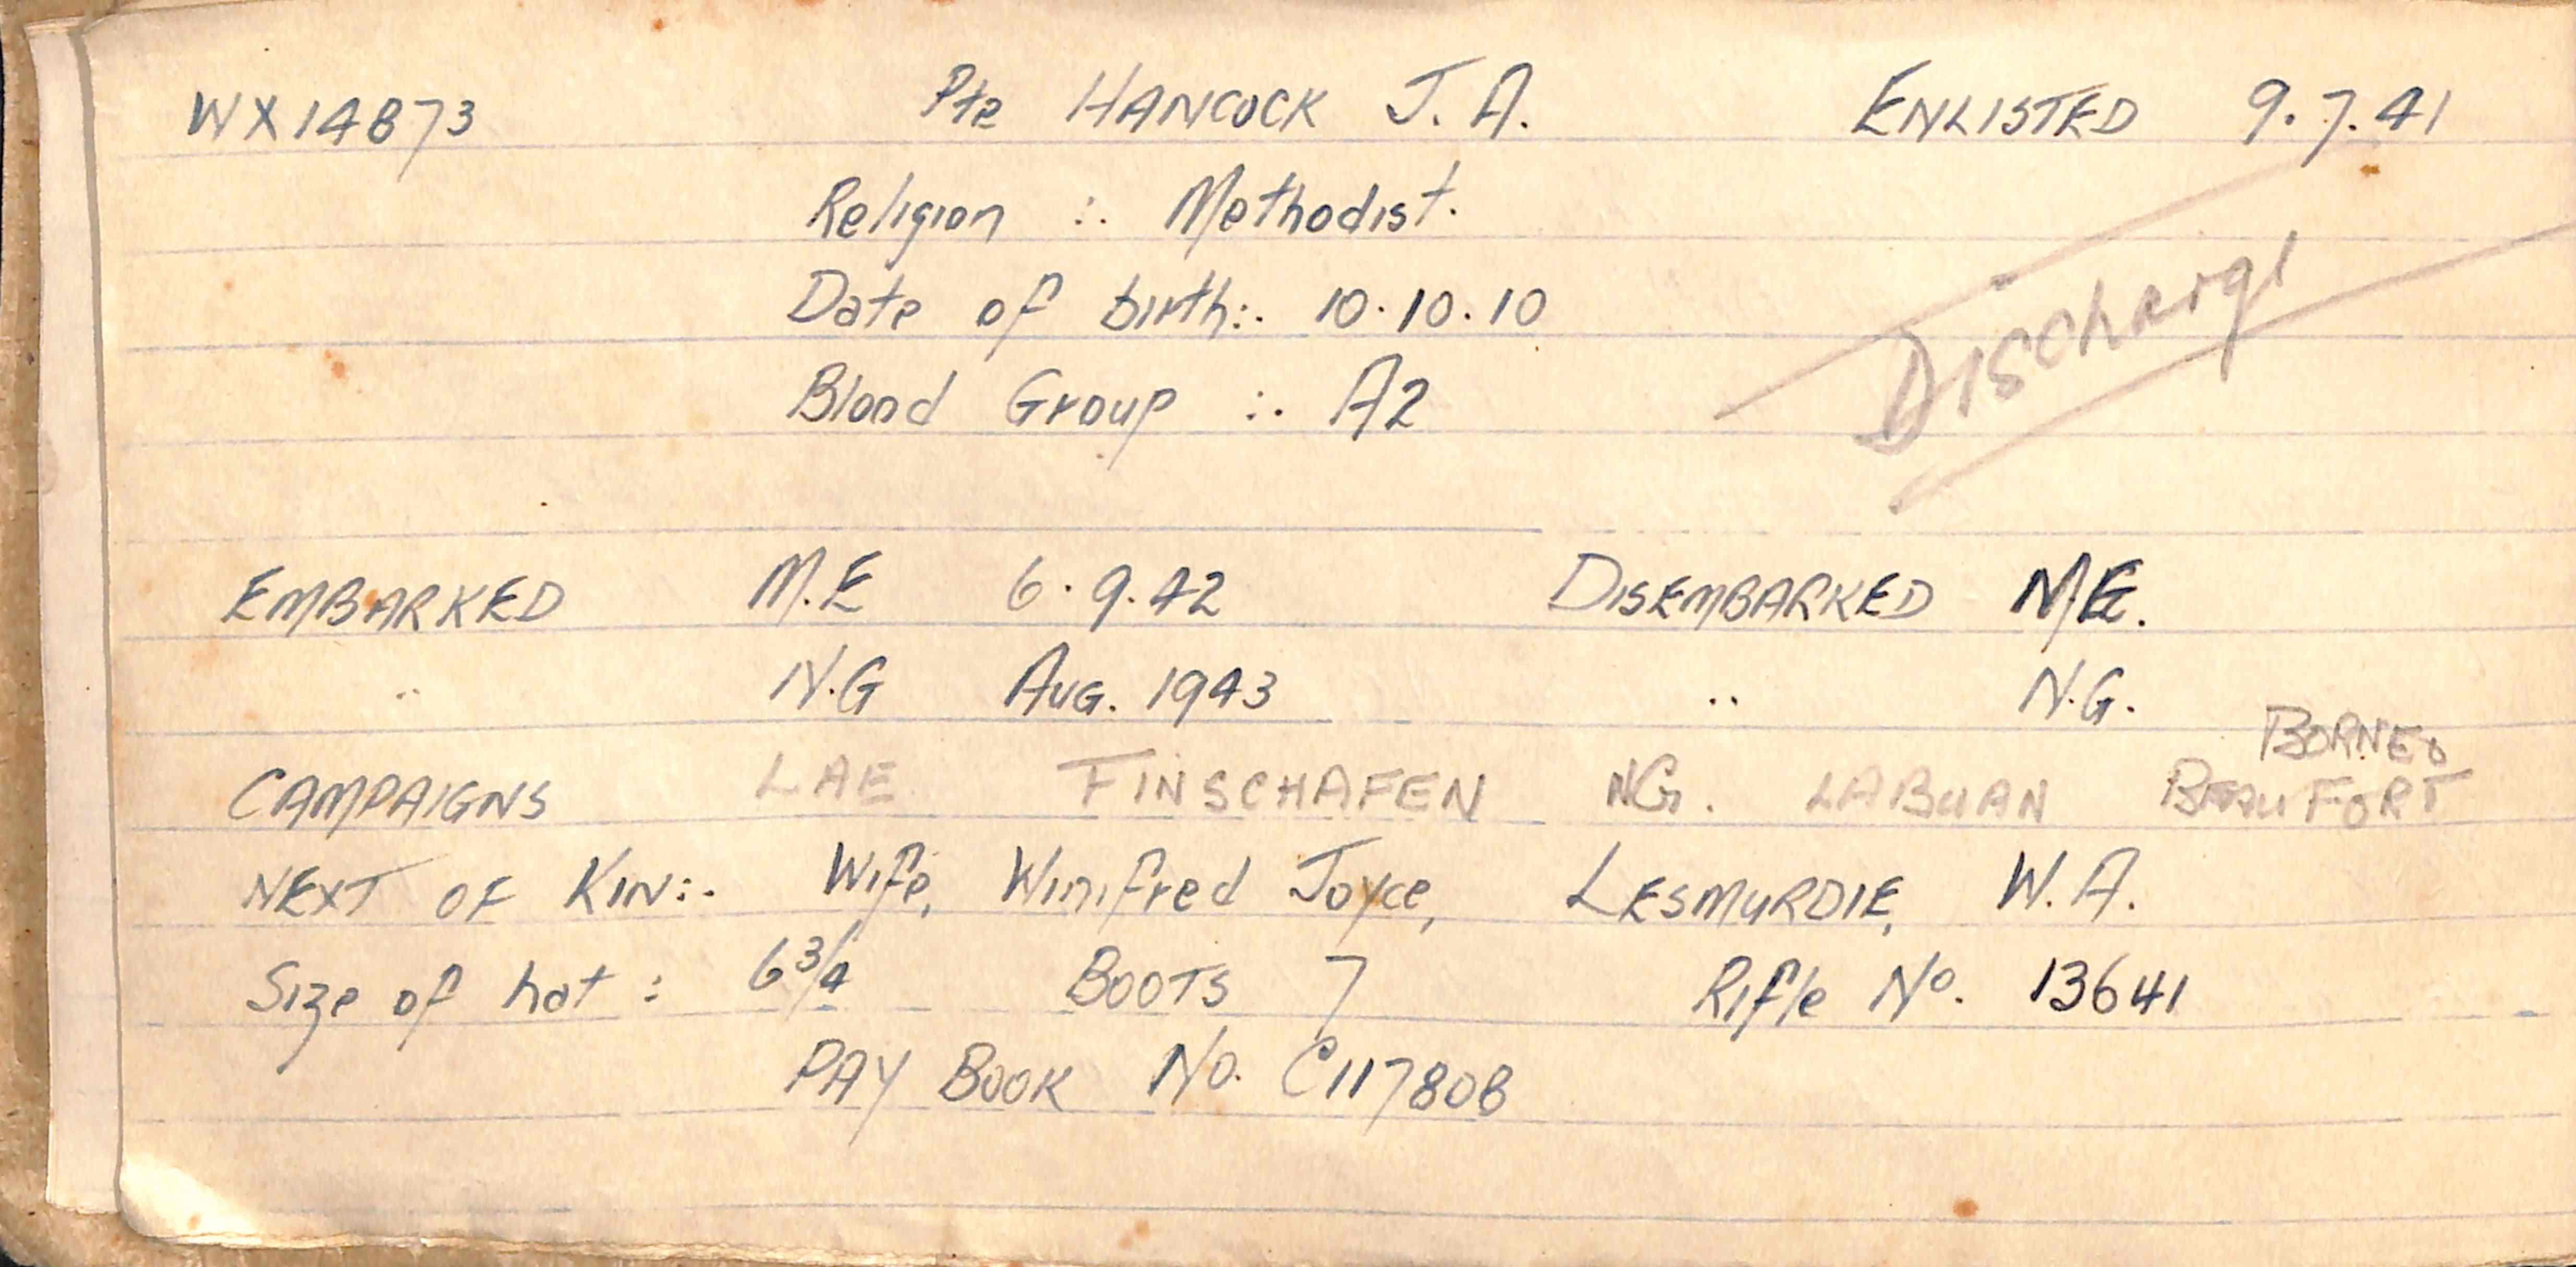 WX14873 Pte HANCOCK J. A. ENLISTED 9.7.41
Religion :. Methodist.
Date of birth:. 10.10.10
Discharge
Blood Group :. A2
EMBARKED M.E 6.9.42 DISEMBARKED M.E.
.. N.G AUG. 1943 .. N.G.
BORNEO
CAMPAIGNS LAE FINSCHAFEN NG. LABUAN BEAUFORT
NEXT OF KIN:. Wife, Winifred Joyce, LESMURDIE, W.A.
Size of hat : 6 3/4 BOOTS 7 Rifle No. 13641
PAY BOOK No. C117808